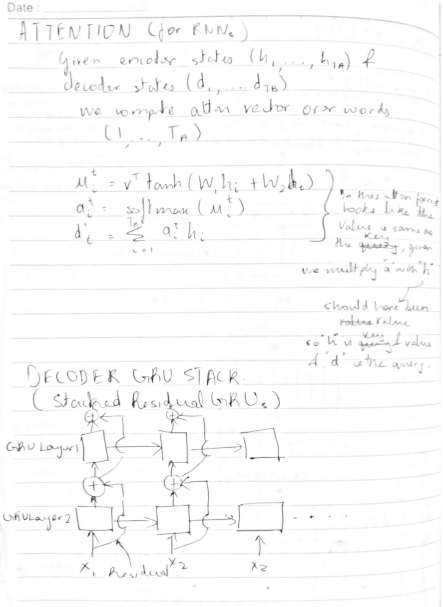 Date :
ATTENTION (for RNNs)
Given encoder states (h₁, ..., h_TA) &
decoder states (d₁, ... d_TB)
we compute attn vector over words
(1, ..., T_A)
uᵢᵗ = vᵀ tanh(W₁hᵢ + W₂dₜ)
aᵢᵗ = softmax (uᵢᵗ)
d'ₜ = Σ_{i=1}^{T_A} aᵢᵗ hᵢ
In this attn form
looks like the
value is same as
the key, given
we multply "a" with "h"
should have been
value
so "h" is key & value
& "d" is the query.
DECODER GRU STACK.
(Stacked Residual GRUs)
+ +
GRU Layer 1
+ +
GRU Layer 2
. . . .
x₁ Residual x₂ x₃